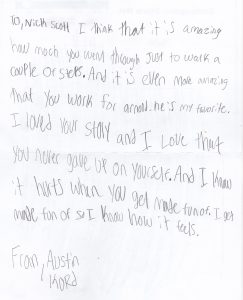 To, Nick Scott I think that it is amazing
how much you went through just to walk a
couple of steps. And it is even more amazing
that you work for arnold. he's my favorite.
I loved your story and I Love that
you never gave up on yourself. And I know
it hurts when you get made fun of. I get
made fun of so I know how it feels.
From, Austin
Kord